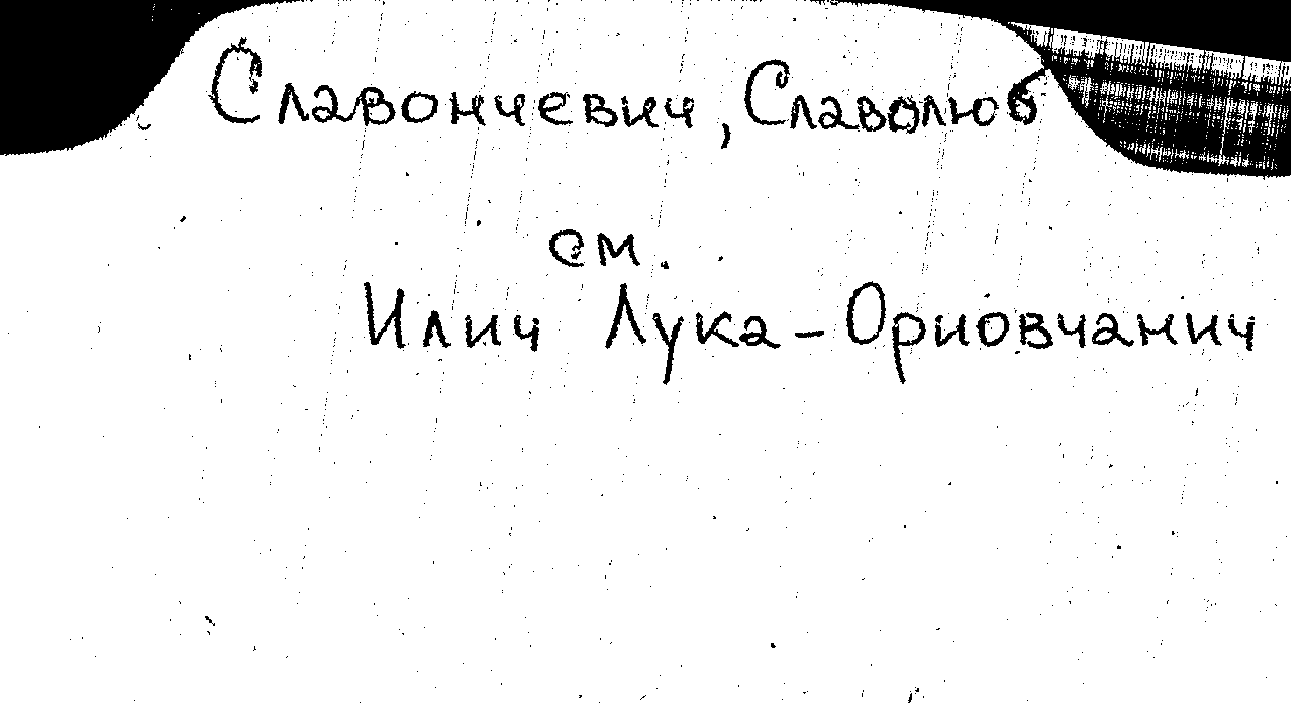 Славончевич, Славолюб
см.
Илич Лука - Ориовчанич